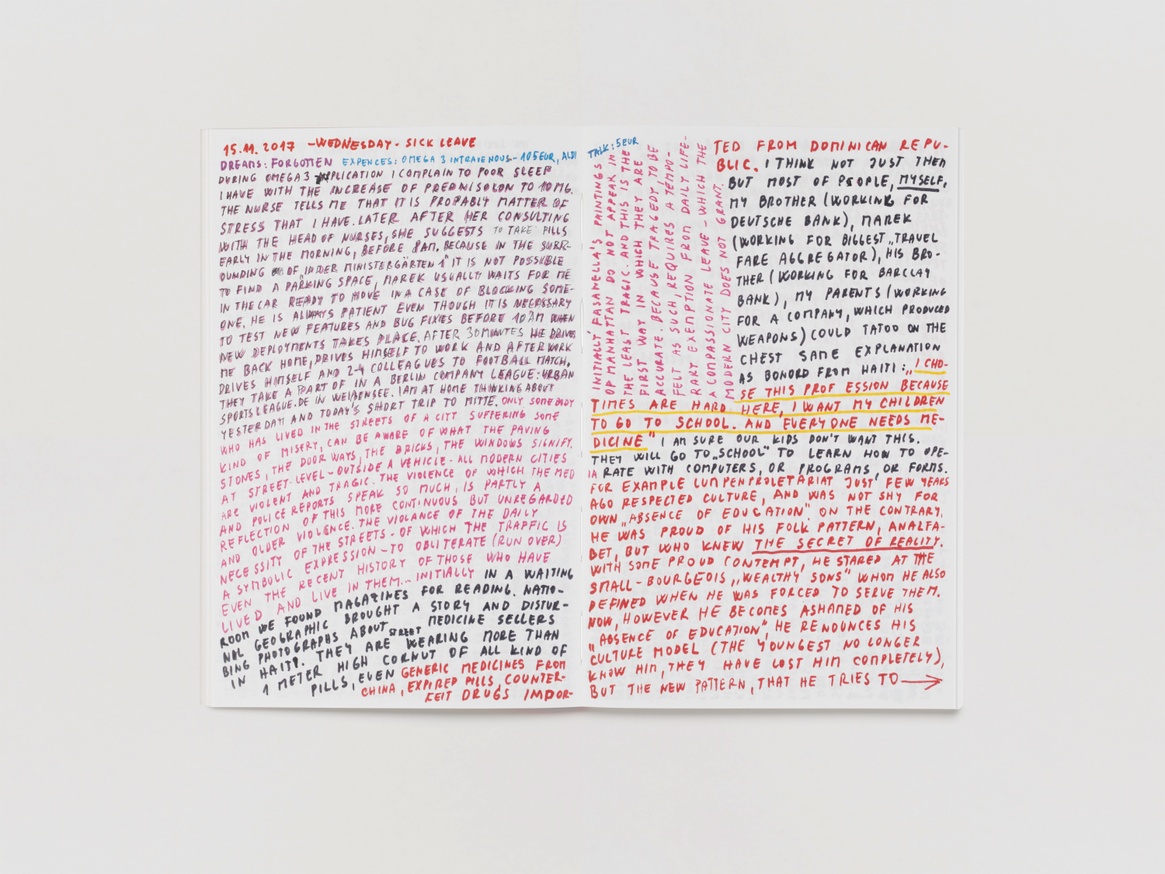 15.11.2017 - WEDNESDAY - SICK LEAVE
DREAMS: FORGOTTEN EXPENCES: OMEGA 3 INTRAVENOUS - 105EUR, ALDI
DURING OMEGA 3 APPLICATION I COMPLAIN TO POOR SLEEP
I HAVE WITH THE INCREASE OF PREDNISOLON TO 10MG.
THE NURSE TELLS ME THAT IT IS PROPABLY MATTER OF
STRESS THAT I HAVE. LATER AFTER HER CONSULTING
WITH THE HEAD OF NURSES, SHE SUGGESTS TO TAKE PILLS
EARLY IN THE MORNING, BEFORE 8AM, BECAUSE IN THE SURR-
OUNDING OF "IN DER MINISTERGÄRTEN 1" IT IS NOT POSSIBLE
TO FIND A PARKING SPACE, MAREK USUALLY WAITS FOR ME
IN THE CAR READY TO MOVE IN A CASE OF BLOCKING SOME-
ONE. HE IS ALWAYS PATIENT EVEN THOUGH IT IS NECESSARY
TO TEST NEW FEATURES AND BUG FIXIES BEFORE 10AM WHEN
NEW DEPLOYMENTS TAKES PLACE. AFTER 30 MINUTES HE DRIVES
ME BACK HOME, DRIVES HIMSELF TO WORK AND AFTERWORK
DRIVES HIMSELF AND 2-4 COLLEAGUES TO FOOTBALL MATCH,
THEY TAKE A PART OF IN A BERLIN COMPANY LEAGUE: URBAN
SPORTS LEAGUE.DE IN WEIßENSEE. I AM AT HOME THINKING ABOUT
YESTERDAY AND TODAY'S SHORT TRIP TO MITTE. ONLY SOMEBODY
WHO HAS LIVED IN THE STREETS OF A CITY SUFFERING SOME
KIND OF MISERY, CAN BE AWARE OF WHAT THE PAVING
STONES, THE DOORWAYS, THE BRICKS, THE WINDOWS SIGNIFY.
AT STREET-LEVEL - OUTSIDE A VEHICLE - ALL MODERN CITIES
ARE VIOLENT AND TRAGIC. THE VIOLENCE OF WHICH THE MED
AND POLICE REPORTS SPEAK SO MUCH, IS PARTLY A
REFLECTION OF THIS MORE CONTINUOUS BUT UNREGARDED
AND OLDER VIOLENCE. THE VIOLANCE OF THE DAILY
NECESSITY OF THE STREETS - OF WHICH THE TRAFFIC IS
A SYMBOLIC EXPRESSION - TO OBLITERATE (RUN OVER)
EVEN THE RECENT HISTORY OF THOSE WHO HAVE
LIVED AND LIVE IN THEM... INITIALLY IN A WAITING
ROOM WE FOUND MAGAZINES FOR READING. NATIO-
NAL GEOGRAPHIC BROUGHT A STORY AND DISTUR-
BING PHOTOGRAPHS ABOUT STREET MEDICINE SELLERS
IN HAITI. THEY ARE WEARING MORE THAN
1 METER HIGH CORNUT OF ALL KIND OF
PILLS, EVEN GENERIC MEDICINES FROM
CHINA, EXPIRED PILLS, COUNTER-
FEIT DRUGS IMPOR-
TALK: 5EUR
INITIALLY FASANELLA'S PAINTINGS
OF MANHATTAN DO NOT APPEAR IN
THE LEAST TRAGIC. AND THIS IS THE
FIRST WAY IN WHICH THEY ARE
ACCURATE. BECAUSE TRAGEDY TO BE
FELT AS SUCH, REQUIRES A TEMPO-
RARY EXEMPTION FROM DAILY LIFE-
A COMPASSIONATE LEAVE - WHICH THE
MODERN CITY DOES NOT GRANT.
TED FROM DOMINICAN REPU-
BLIC. I THINK NOT JUST THEM
BUT MOST OF PEOPLE, MYSELF,
MY BROTHER (WORKING FOR
DEUTSCHE BANK), MAREK
(WORKING FOR BIGGEST "TRAVEL
FARE AGGREGATOR), HIS BRO-
THER (WORKING FOR BARCLAY
BANK), MY PARENTS (WORKING
FOR A COMPANY, WHICH PRODUCED
WEAPONS) COULD TATOO ON THE
CHEST SAME EXPLANATION
AS BONORD FROM HAITI: „I CHO-
SE THIS PROFESSION BECAUSE
TIMES ARE HARD HERE, I WANT MY CHILDREN
TO GO TO SCHOOL. AND EVERYONE NEEDS ME-
DICINE" I AM SURE OUR KIDS DON'T WANT THIS.
THEY WILL GO TO „SCHOOL" TO LEARN HOW TO OPE-
RATE WITH COMPUTERS, OR PROGRAMS, OR FORMS.
FOR EXAMPLE LUMPENPROLETARIAT JUST FEW YEARS
AGO RESPECTED CULTURE, AND WAS NOT SHY FOR
OWN „ABSENCE OF EDUCATION" ON THE CONTRARY,
HE WAS PROUD OF HIS FOLK PATTERN, ANALFA-
BET, BUT WHO KNEW THE SECRET OF REALITY.
WITH SOME PROUD CONTEMPT, HE STARED AT THE
SMALL-BOURGEOIS „WEALTHY SONS" WHOM HE ALSO
DEFINED WHEN HE WAS FORCED TO SERVE THEM.
NOW, HOWEVER HE BECOMES ASHAMED OF HIS
"ABSENCE OF EDUCATION", HE RENOUNCES HIS
CULTURE MODEL (THE YOUNGEST NO LONGER
KNOW HIM, THEY HAVE LOST HIM COMPLETELY),
BUT THE NEW PATTERN, THAT HE TRIES TO →